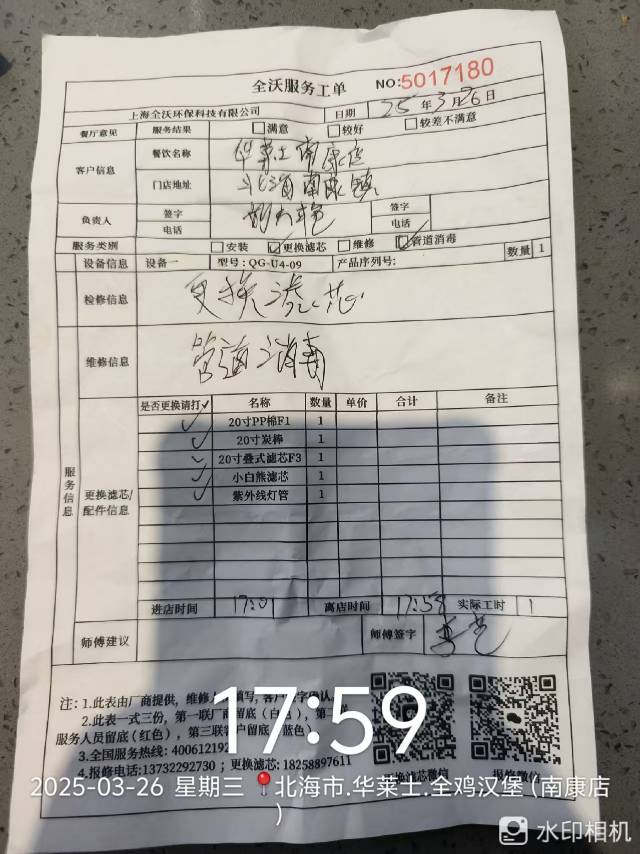 全沃服务工单 NO:5017180
上海全沃环保科技有限公司 日期 25年3月26日
餐厅意见 服务结果 □满意 □较好 □较差不满意
客户信息 餐饮名称 华莱士南康店
门店地址 北海南康镇
负责人 签字 签字
电话 电话
服务类别 □安装 ☑更换滤芯 □维修 ☑管道消毒
设备信息 设备一 型号:QG-U4-09 产品序列号: 数量 1
检修信息 更换滤芯
维修信息 管道消毒
服务信息
更换滤芯/配件信息
是否更换请打✓ 名称 数量 单价 合计 备注
✓ 20寸PP棉F1 1
✓ 20寸炭棒 1
✓ 20寸叠式滤芯F3 1
✓ 小白熊滤芯 1
✓ 紫外线灯管 1
进店时间 17:01 离店时间 17:59 实际工时 1
师傅建议 师傅签字
注:1.此表由厂商提供,维修人
2.此表一式三份,第一联厂商留底(白色),第二
服务人员留底(红色),第三联客户留底(蓝色)
3.全国服务热线:40061219
4.报修电话:13732292730 ;更换滤芯:18258897611
更换滤芯微信 报修微信
17:59
2025-03-26 星期三 北海市.华莱士.全鸡汉堡(南康店
)
水印相机